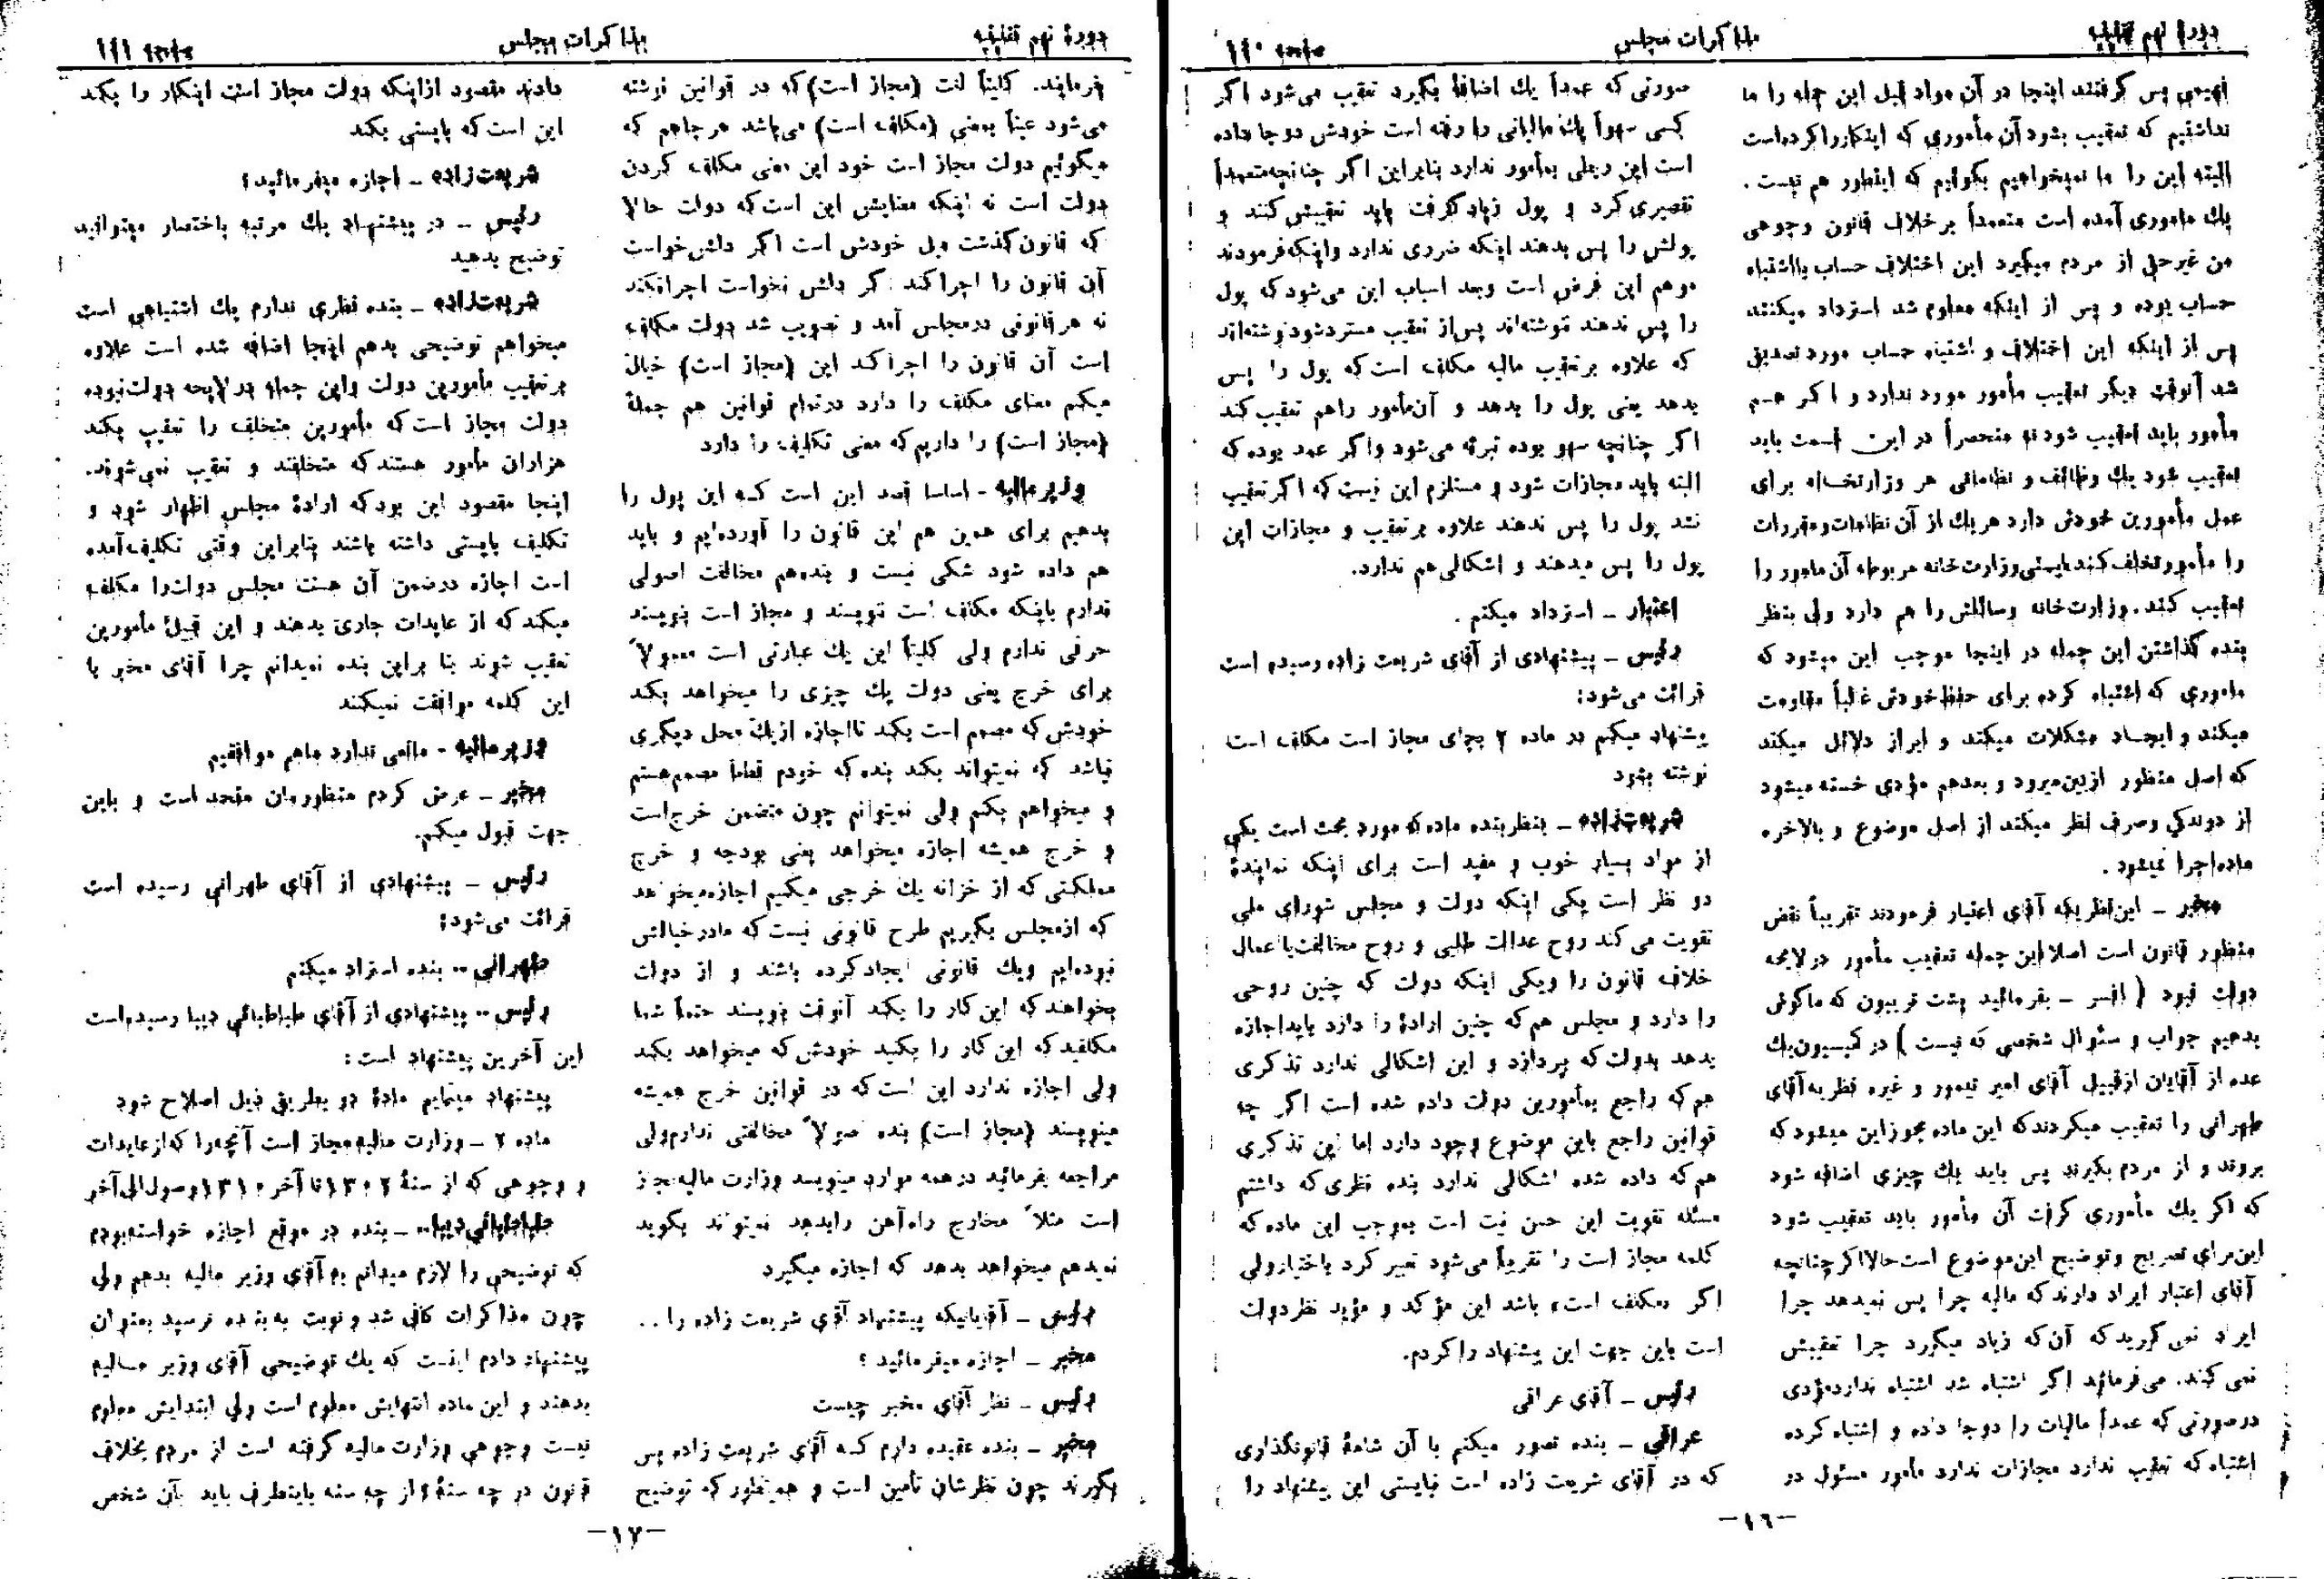 دورۀ نهم تقنینیه
مذاکرات مجلس
صفحه ۱۱۰
نداشتیم که تعقیب بشود آن مأموری که اینکار را کرده است
البته این را ما نمیخواهیم بگوئیم که اینطور هم نیست.
یك ماموری آمده است متعمداً برخلاف قانون وجوهی
من غیر حق از مردم میگیرد این اختلاف حساب یا اشتباه
حساب بوده و پس از اینکه معلوم شد استرداد میکنند
پس از اینکه این اختلاف و اشتباه حساب مورد تصدیق
شد آنوقت دیگر تعقیب مأمور مورد ندارد و اگر هم
مأمور باید تعقیب شود نه منحصراً در این قسمت باید
تعقیب شود یك وظائف و نظاماتی هر وزارتخانه برای
عمل مأمورین خودش دارد هر یك از آن نظامات و مقررات
را مأمور تخلف کند بایستی وزارت خانه مربوطه آن مامور را
تعقیب کند. وزارت خانه وسائلش را هم دارد ولی بنظر
بنده گذاشتن این جمله در اینجا موجب این میشود که
ماموری که اشتباه کرده برای حفظ خودش غالباً مقاومت
میکند و ایجاد مشکلات میکند و ابراز دلائل میکند
که اصل منظور از بین میرود و بعد هم مؤدی خسته میشود
از دوندگی و صرف نظر میکند از اصل موضوع و بالاخره
ماده اجرا نمیشود.
مخبر ـ این نظریکه آقای اعتبار فرمودند تقریباً نقض
منظور قانون است اصلا این جمله تعقیب مأمور در لایحه
دولت نبود (افسر ـ بفرمائید پشت تریبون که ما گوش
بدهیم جواب و سئوال شخصی که نیست) در کمیسیون یك
عده از آقایان از قبیل آقای امیر تیمور و غیره نظریه آقای
طهرانی را تعقیب میکردند که این ماده مجوز این میشود که
بروند و از مردم بگیرند پس باید یك چیزی اضافه شود
که اگر یك مأموری گرفت آن مأمور باید تعقیب شود
این برای تصریح و توضیح این موضوع است حالا اگر چنانچه
آقای اعتبار ایراد دارند که مالیه چرا پس نمیدهد چرا
ایراد نمی گیرید که آن که زیاد میگیرد چرا تعقیبش
نمی کنند. می فرمائید اگر اشتباه شد اشتباه ندارد مؤدی
در صورتی که عمداً مالیات را دو جا داده و اشتباه کرده
اشتباه که تعقیب ندارد مجازات ندارد مأمور مسئول در
صورتی که عمداً یك اضافۀ بگیرد تعقیب می شود اگر
کسی سهواً یك مالیاتی را رفته است خودش دو جا داده
است این ربطی بمأمور ندارد بنابراین اگر چنانچه متعمداً
تقصیری کرد و پول زیاد گرفت باید تعقیبش کنند و
پولش را پس بدهند اینکه ضرری ندارد و اینکه فرمودند
موهم این فرض است و بعد اسباب این می شود که پول
را پس ندهند ننوشته اند پس از تعقیب مسترد شود نوشته اند
که علاوه بر تعقیب مالیه مکلف است که پول را پس
بدهد یعنی پول را بدهد و آن مأمور را هم تعقیب کند
اگر چنانچه سهو بوده تبرئه می شود و اگر عمد بوده که
البته باید مجازات شود و مستلزم این نیست که اگر تعقیب
نشد پول را پس ندهند علاوه بر تعقیب و مجازات این
پول را پس میدهند و اشکالی هم ندارد.
اعتبار ـ استرداد میکنم.
رئیس ـ پیشنهادی از آقای شریعت زاده رسیده است
قرائت می شود:
پیشنهاد میکنم در ماده ۲ بجای مجاز است مکلف است
نوشته بشود
شریعت زاده ـ بنظر بنده ماده که مورد بحث است یکی
از مواد بسیار خوب و مفید است برای اینکه نمایندۀ
دو نظر است یکی اینکه دولت و مجلس شورای ملی
تقویت می کند روح عدالت طلبی و روح مخالفت با اعمال
خلاف قانون را و یکی اینکه دولت که چنین روحی
را دارد و مجلس هم که چنین ارادۀ را دارد باید اجازه
بدهد بدولت که بپردازد و این اشکالی ندارد تذکری
هم که راجع بمأمورین دولت داده شده است اگر چه
قوانین راجع باین موضوع وجود دارد اما این تذکری
هم که داده شده اشکالی ندارد بنده نظری که داشتم
مسئله تقویت این حسن نیت است بموجب این ماده که
کلمه مجاز است را تقریباً می شود تعبیر کرد باختیار ولی
اگر «مکلف است» باشد این مؤکد و مؤید نظر دولت
است باین جهت این پیشنهاد را کردم.
رئیس ـ آقای عراقی
عراقی ـ بنده تصور میکنم با آن شامۀ قانونگذاری
که در آقای شریعت زاده است نبایستی این پیشنهاد را
ـ۱۶ـ
دورۀ نهم تقنینیه
مذاکرات مجلس
صفحه ۱۱۱
بفرمایند. کلیتاً لغت (مجاز است) که در قوانین نوشته
می شود عیناً بمعنی (مکلف است) می باشد هر جا هم که
میگوئیم دولت مجاز است خود این معنی مکلف کردن
دولت است نه اینکه معنایش این است که دولت حالا
که قانون گذشت میل خودش است اگر دلش خواست
آن قانون را اجرا کند اگر دلش نخواست اجرا نکند
نه هر قانونی در مجلس آمد و تصویب شد دولت مکلف
است آن قانون را اجرا کند این (مجاز است) خیال
میکنم معنای مکلف را دارد در تمام قوانین هم جملۀ
(مجاز است) را داریم که معنی تکلیف را دارد
وزیر مالیه ـ اساسا قصد این است که این پول را
بدهیم برای همین هم این قانون را آورده ایم و باید
هم داده شود شکی نیست و بنده هم مخالفت اصولی
ندارم باینکه مکلف است نویسند و مجاز است بنویسند
حرفی ندارم ولی کلیتاً این یك عبارتی است معمولاً
برای خرج یعنی دولت یك چیزی را میخواهد بکند
خودش که مصمم است بکند تا اجازه از یك محل دیگری
نباشد که نمیتواند بکند بنده که خودم قطعاً مصمم هستم
و میخواهم بکنم ولی نمیتوانم چون متضمن خرج است
و خرج همیشه اجازه میخواهد یعنی بودجه و خرج
مملکتی که از خزانه یك خرجی میکنیم اجازه میخواهد
که از مجلس بگیریم طرح قانونی نیست که ما در خیالش
نبوده ایم و یك قانونی ایجاد کرده باشند و از دولت
بخواهند که این کار را بکند آنوقت بنویسند حتماً شما
مکلفید که این کار را بکنید خودش که میخواهد بکند
ولی اجازه ندارد این است که در قوانین خرج همیشه
مینویسند (مجاز است) بنده اصولاً مخالفتی ندارم ولی
مراجعه بفرمائید در همه موارد مینویسد وزارت مالیه مجاز
است مثلاً مخارج راه آهن را بدهد نمیتواند بگوید
نمیدهم میخواهد بدهد که اجازه میگیرد
رئیس ـ آقایانیکه پیشنهاد آقای شریعت زاده را...
مخبر ـ اجازه میفرمائید؟
رئیس ـ نظر آقای مخبر چیست
مخبر ـ بنده عقیده دارم که آقای شریعت زاده پس
بگیرند چون نظرشان تأمین است و همینطور که توضیح
دادند مقصود از اینکه دولت مجاز است اینکار را بکند
این است که بایستی بکند
شریعت زاده ـ اجازه میفرمائید؟
رئیس ـ در پیشنهاد یك مرتبه باختصار میتوانید
توضیح بدهید
شریعت زاده ـ بنده نظری ندارم یك اشتباهی است
میخواهم توضیحی بدهم اینجا اضافه شده است علاوه
بر تعقیب مأمورین دولت و این جمله در لایحه دولت نبوده
دولت مجاز است که مأمورین متخلف را تعقیب بکند
هزاران مأمور هستند که متخلفند و تعقیب نمی شوند.
اینجا مقصود این بود که ارادۀ مجلس اظهار شود و
تکلیف بایستی داشته باشند بنابراین وقتی تکلیف آمده
است اجازه در ضمن آن هست مجلس دولت را مکلف
میکند که از عایدات جاری بدهند و این قبیل مأمورین
تعقیب شوند بنا براین بنده نمیدانم چرا آقای مخبر با
این کلمه موافقت نمیکنند
وزیر مالیه ـ مانعی ندارد ماهم موافقیم
مخبر ـ عرض کردم منظورمان متحد است و باین
جهت قبول میکنم.
رئیس ـ پیشنهادی از آقای طهرانی رسیده است
قرائت می شود:
طهرانی ـ بنده استرداد میکنم
رئیس ـ پیشنهادی از آقای طباطبائی دیبا رسیده است
این آخرین پیشنهاد است:
پیشنهاد مینمایم مادۀ دو بطریق ذیل اصلاح شود
ماده ۲ ـ وزارت مالیه مجاز است آنچه را که از عایدات
و وجوهی که از سنۀ ۱۳۰۲ تا آخر ۱۳۱۰ وصول الی آخر
طباطبائی دیبا ـ بنده در موقع اجازه خواسته بودم
که توضیحی را لازم میدانم به آقای وزیر مالیه بدهم ولی
چون مذاکرات کافی شد و نوبت به بنده نرسید بعنوان
پیشنهاد دادم اینست که یك توضیحی آقای وزیر مالیه
بدهند و این ماده انتهایش معلوم است ولی ابتدایش معلوم
نیست وجوهی وزارت مالیه گرفته است از مردم بخلاف
قانون در چه سنۀ و از چه سنه باینطرف باید بآن شخص
ـ۱۷ـ